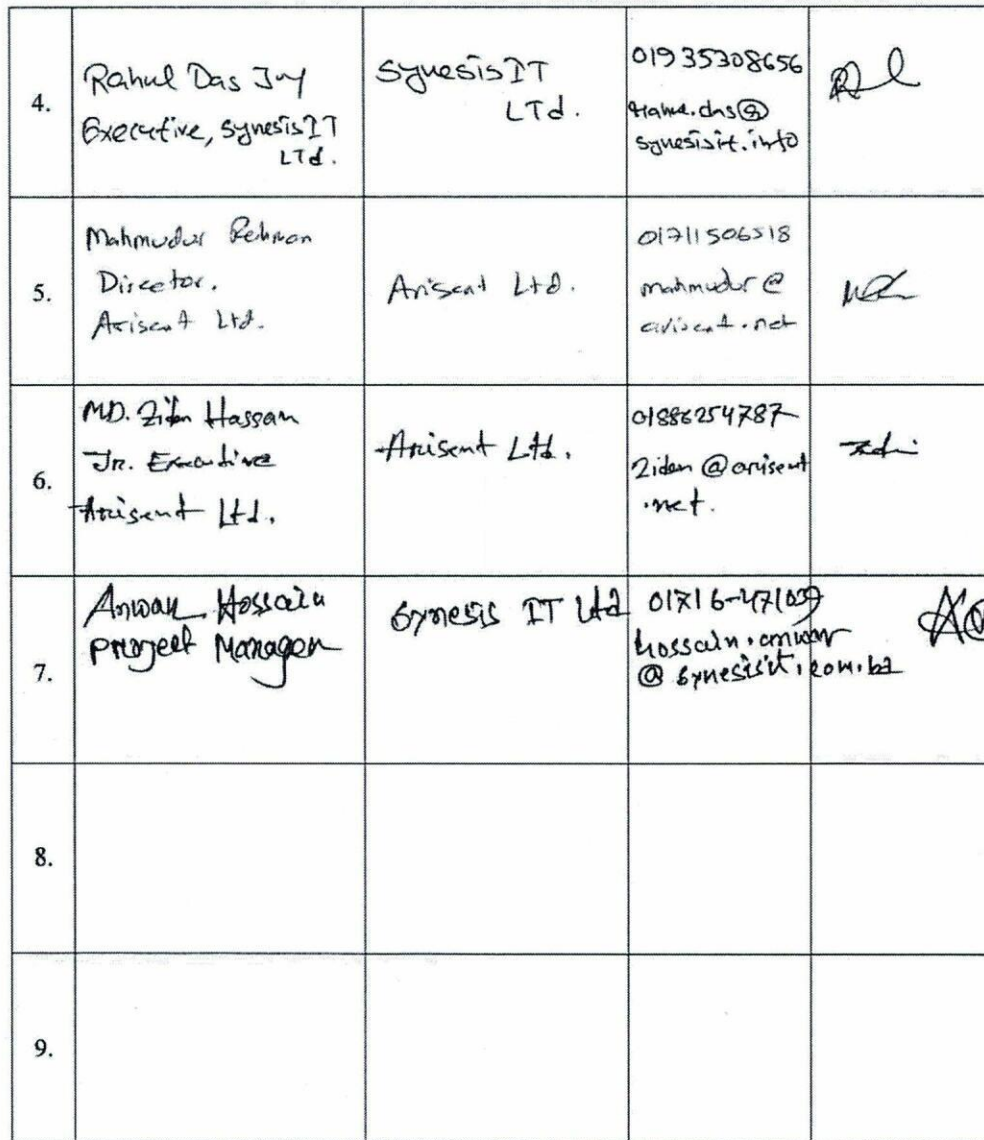 4.
Rahul Das Joy
Executive, Synesis IT
LTd.
Synesis IT
LTd.
01935308656
synesisit.info
5.
Mahmudur Rehman
Director.
Arisent Ltd.
Arisent Ltd.
01711506518
mahmudur@
arisent.net
6.
MD. Zidan Hassan
Jr. Executive
Arisent Ltd.
Arisent Ltd.
01886254787
Zidan@arisent
.net.
7.
Anwar Hossain
Project Manager
Synesis IT Ltd
hossain.anwar
@synesisit.com.bd
8.
9.